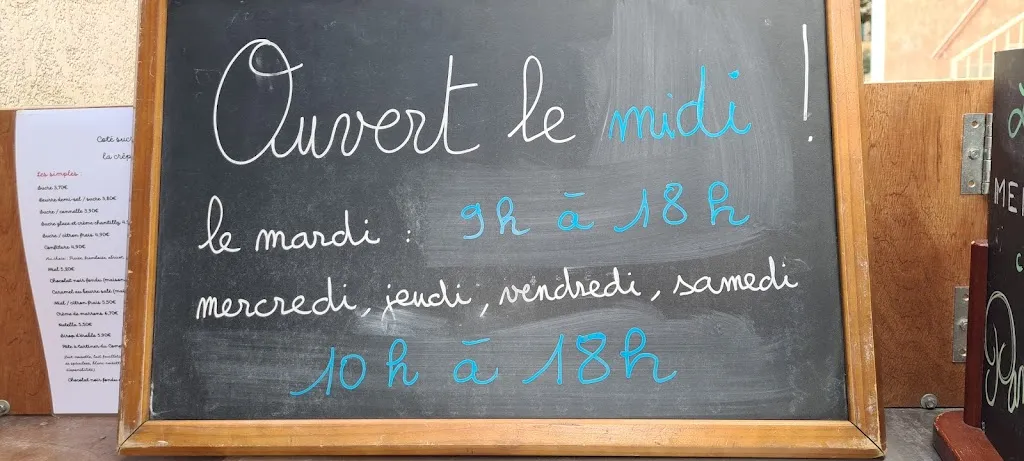 Ouvert le midi !
le mardi : 9h à 18h
mercredi, jeudi, vendredi, samedi
10h à 18h
Coté sucr
la crêp
Les simples :
Sucre 3,70€
Beurre demi-sel / sucre 3,80€
Sucre / cannelle 3,90€
Sucre glace et crème chantilly 4,
Sucre / citron frais 4,90€
Confiture 4,90€
Miel 5,20€
Chocolat noir fondu (maison
Caramel au beurre salé (mai
Miel / citron frais 5,50€
Crème de marrons 4,70€
Nutella 5,50€
Sirop d'érable 5,90€
Pâte à tartiner du Comp
Chocolat noir fondu
ME